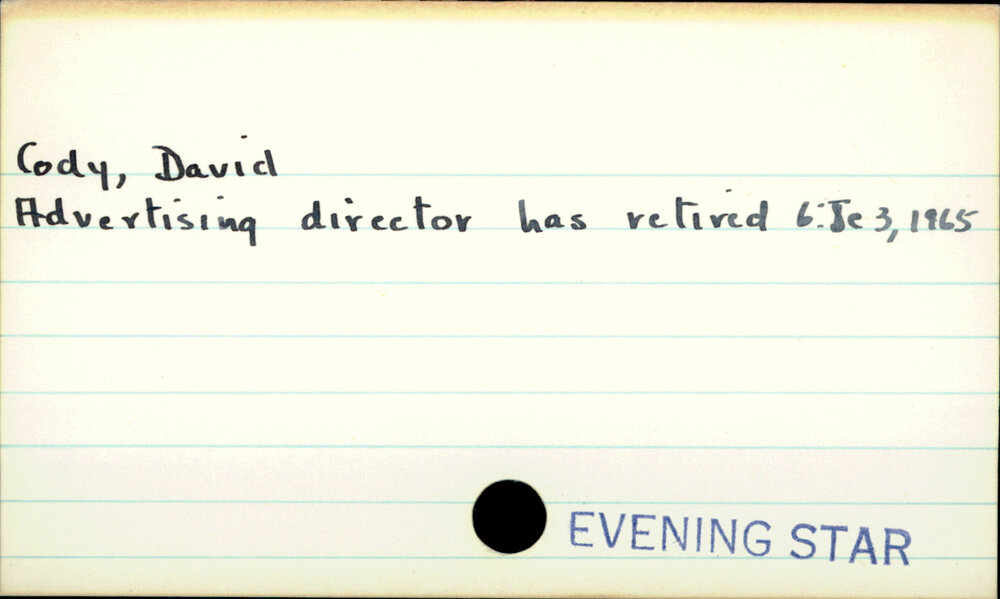 Cody, David
Advertising director has retired 6:Je 3, 1965
EVENING STAR